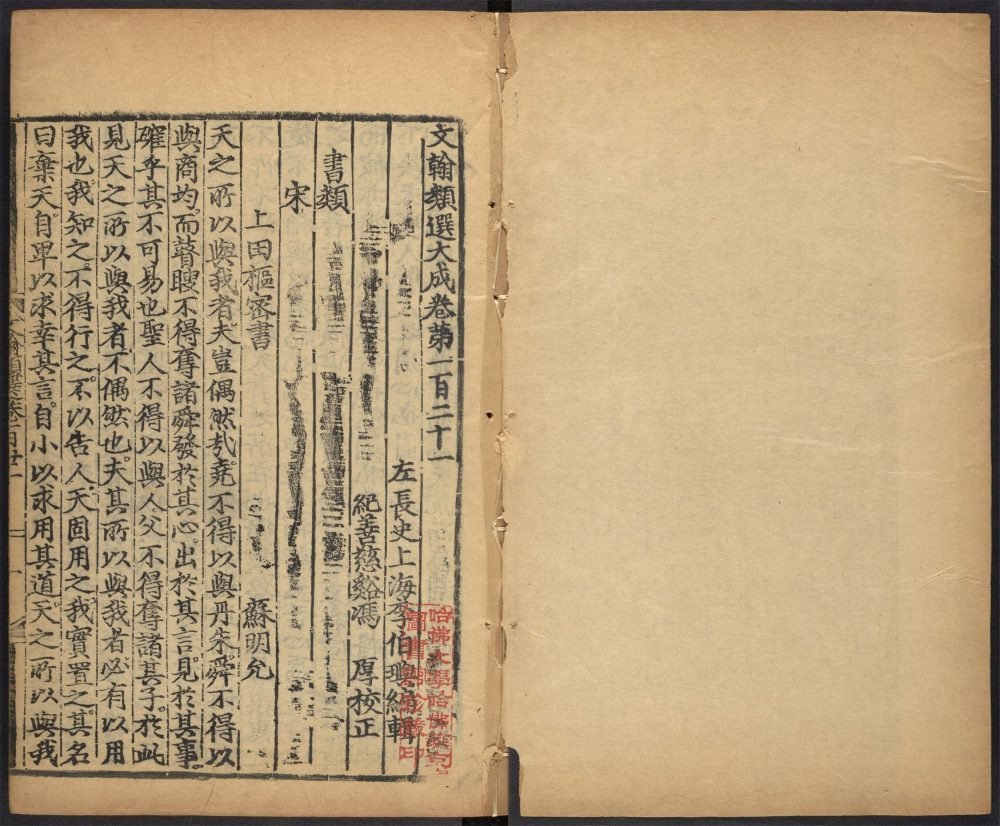 文翰類選大成卷第一百二十一
左長史上海李伯璵編輯
紀善慈谿馮　厚校正
書類
宋
上田樞密書　蘇明允
天之所以與我者夫豈偶然哉堯不得以與丹朱舜不得以
與商均而瞽瞍不得奪諸舜發於其心出於其言見於其事
確乎其不可易也聖人不得以與人父不得奪諸其子於此
見天之所以與我者不偶然也夫其所以與我者必有以用
我也我知之不得行之不以告人天固用之我實置之其名
曰棄天自卑以求幸其言自小以求用其道天之所以與我
哈佛大學哈佛燕京
圖書館珍藏印